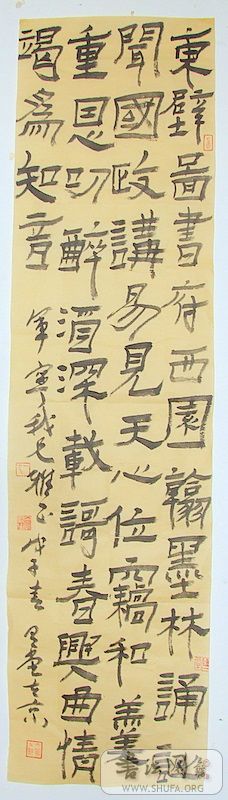 東壁啚書府西園翰墨林誦詩
聞國政講易見天心位竊和羹
重恩叨醉酒深載謌春興曲情
竭為知音
兄雅正戊子春 在京
WWW.SHUFA.ORG